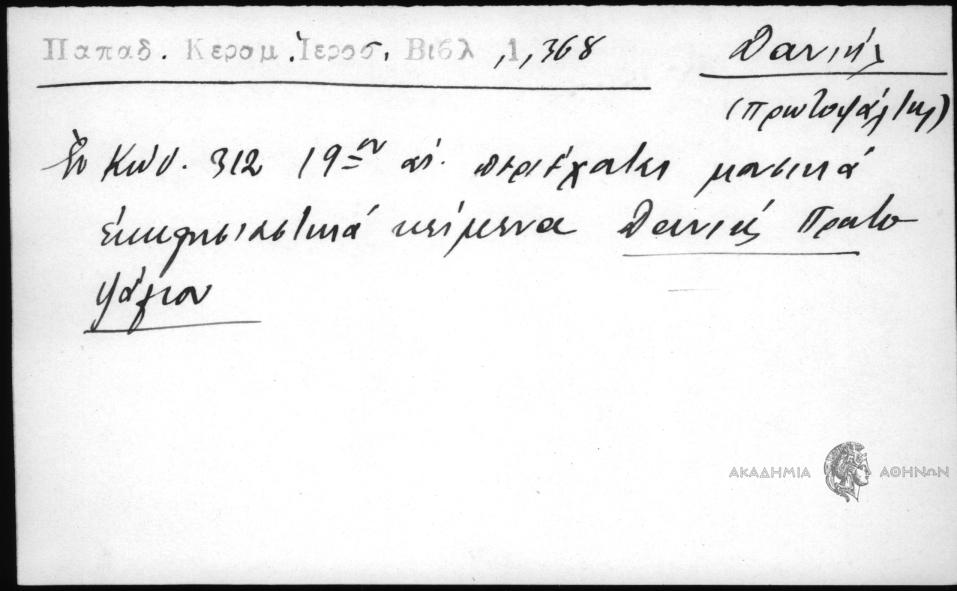 Παπαδ. Κεραμ. Ἱεροσ. Βιβλ 1, 368
Δανιήλ
(πρωτοψάλτης)
Ἐν Κώδ. 312 19ου αἰ. περιέχονται μουσικά
ἐκκλησιαστικά κείμενα Δανιήλ Πρωτο
ψάλτου
ΑΚΑΔΗΜΙΑ ΑΘΗΝΩΝ